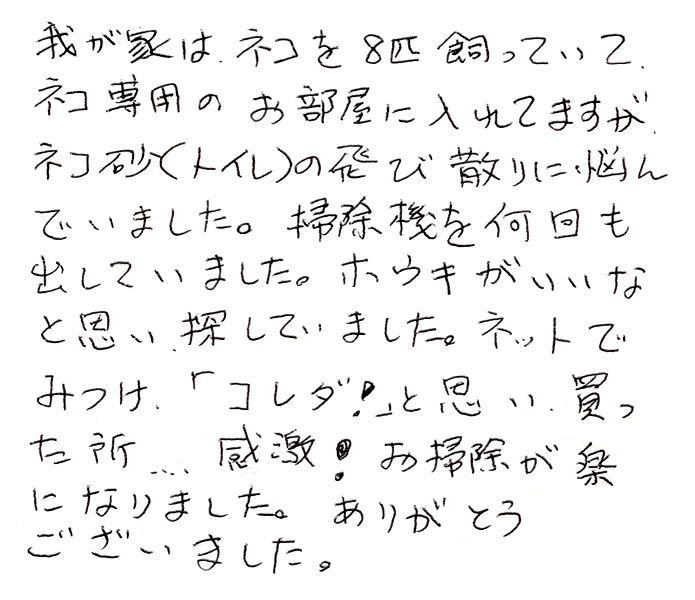 我が家は、ネコを8匹飼っていて、
ネコ専用のお部屋に入れてますが、
ネコ砂(トイレ)の飛び散りに、悩ん
でいました。掃除機を何回も
出していました。ホウキがいいな
と思い、探していました。ネットで
みつけ、「コレダ!」と思い、買っ
た所…感激!お掃除が楽
になりました。ありがとう
ございました。